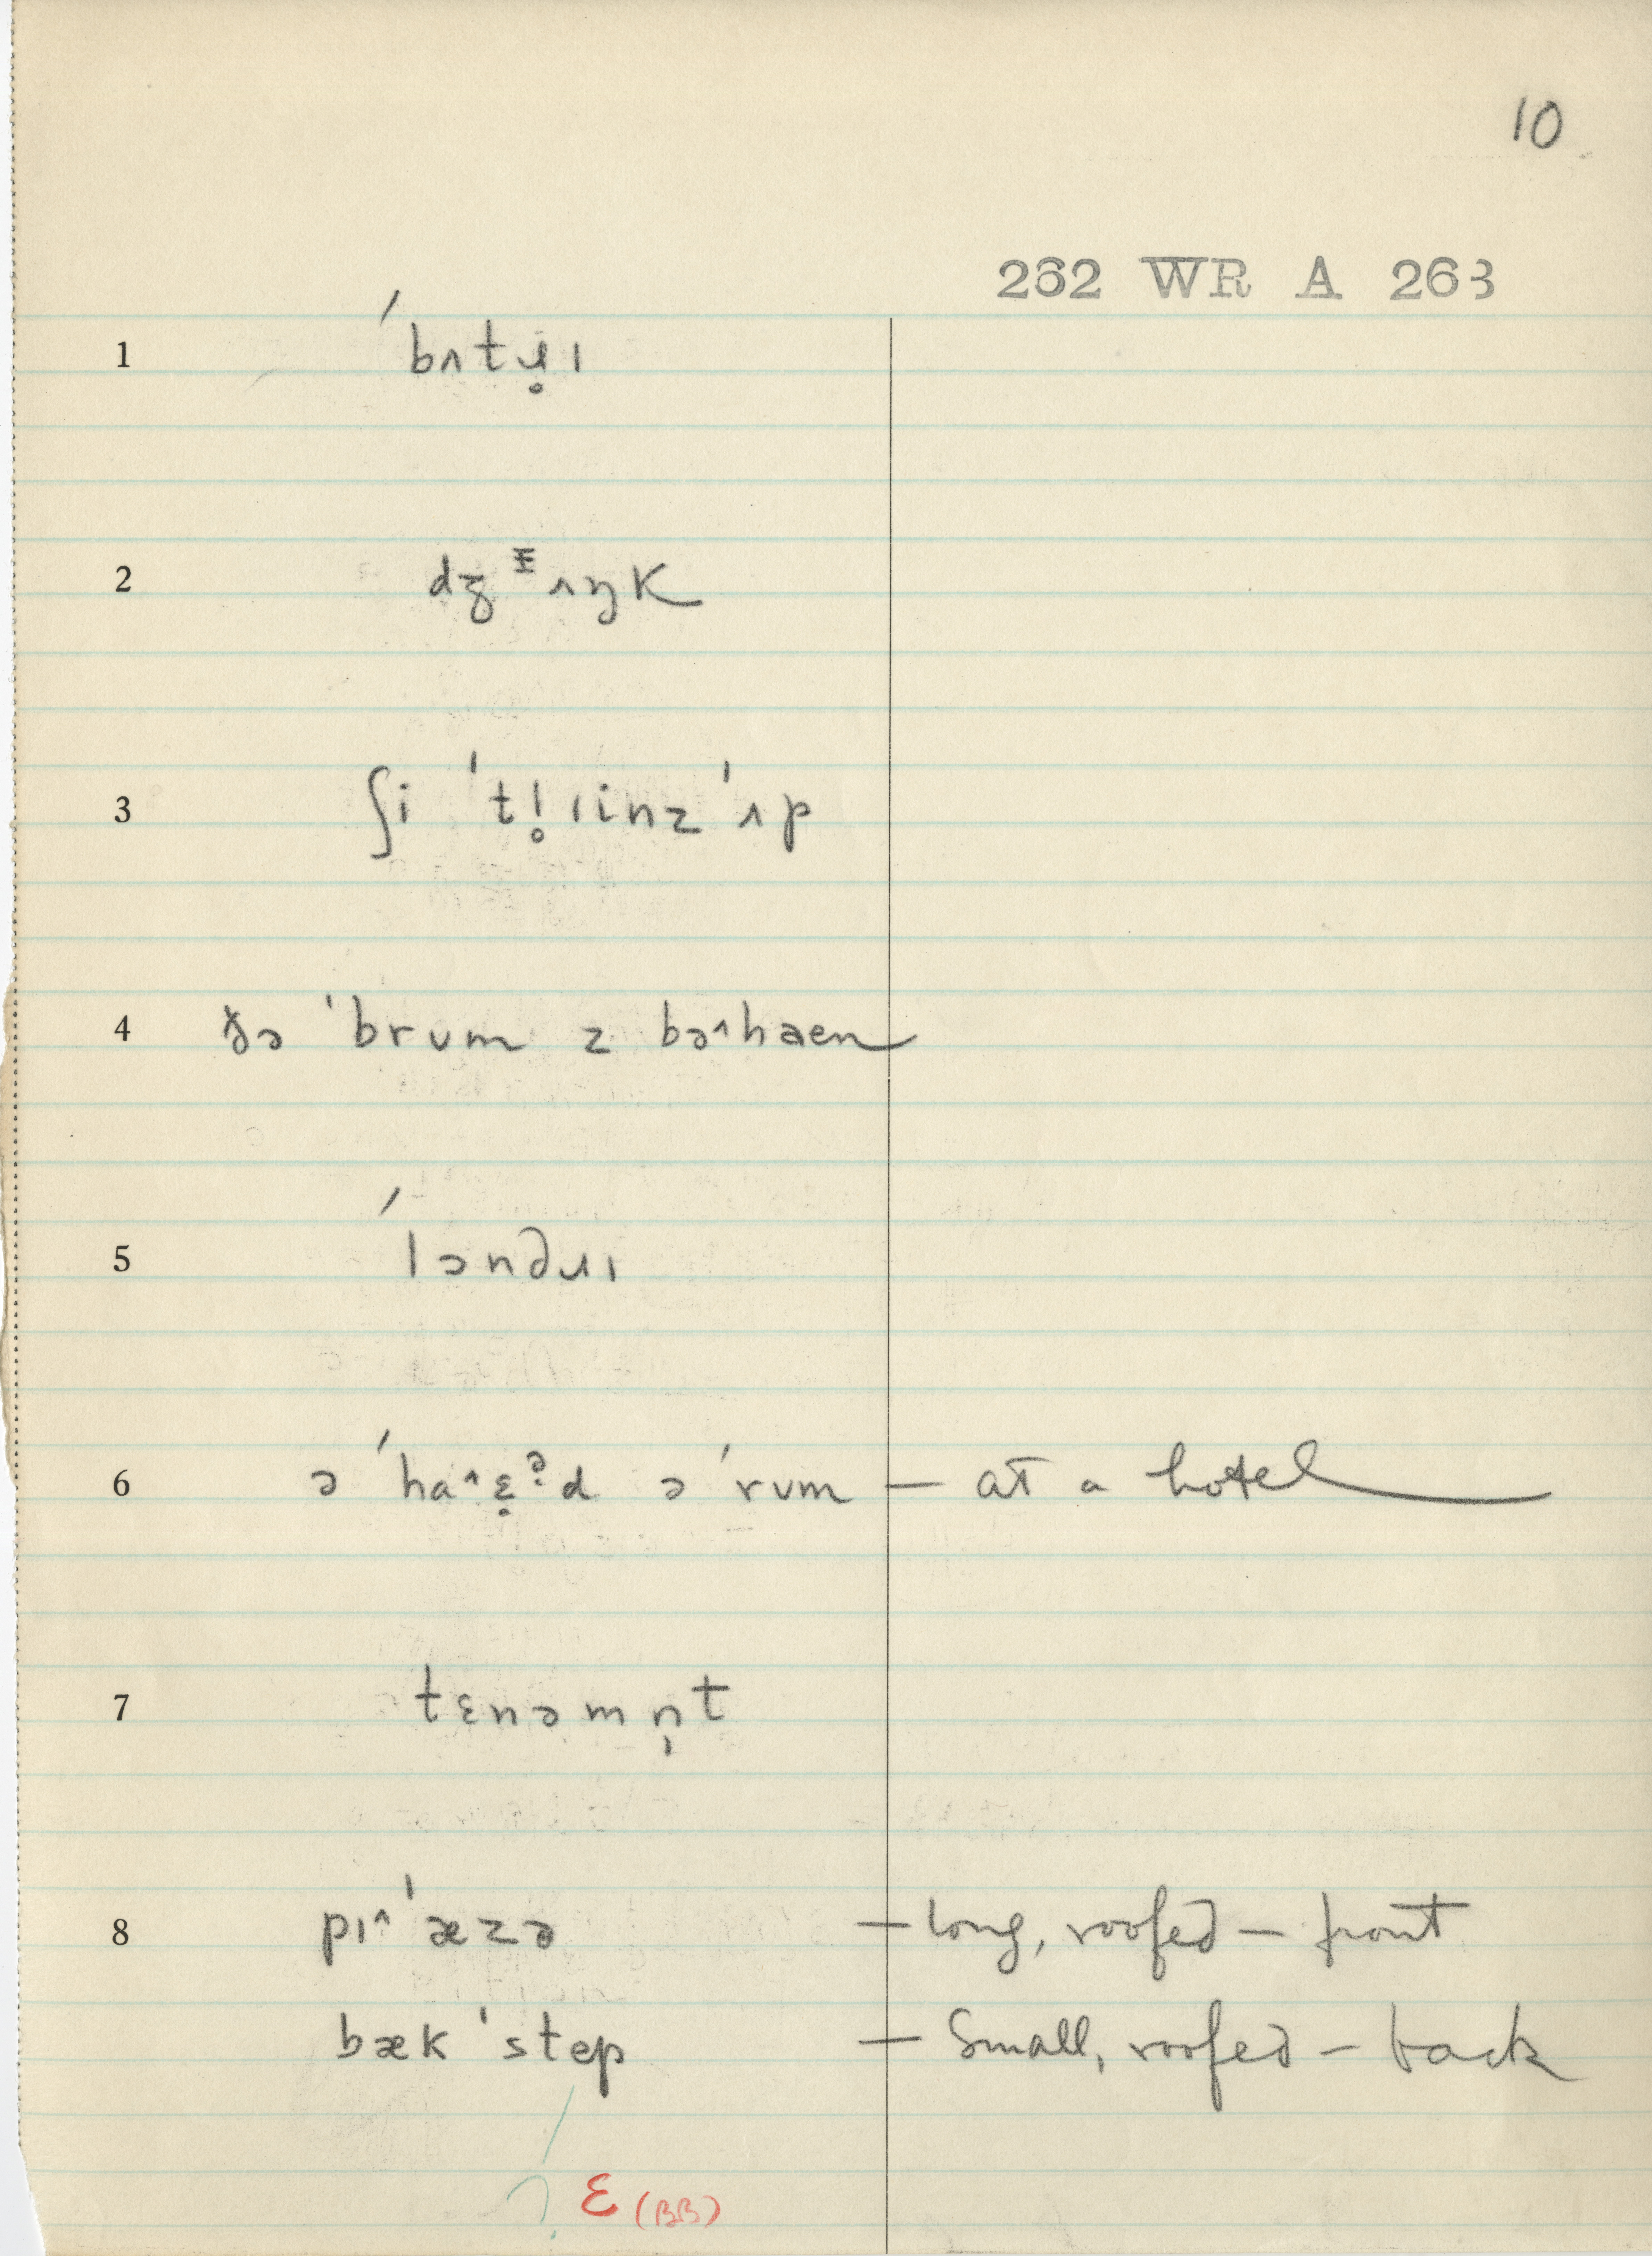 10
262 WR A 263
1 ˈbʌtɹ̥ɪ
2 dʒᵻʌŋk
3 ʃi ˈtl̥ɪinz ˈʌp
4 ðə ˈbrʊm z bə^haen
5 ˈlɔndɹɪ
6 ə ˈha^ɛ̣ə̣d ə ˈrʊm — at a hotel
7 tɛnəmn̩t
8 pɪ^ ˈæzə — long, roofed — front
bæk ˈstep — Small, roofed — back
? ɛ (BB)